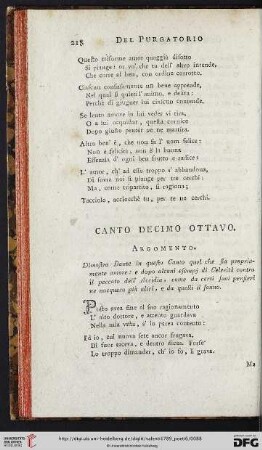 218 DEL PURGATORIO
Questo triforme amor quaggiù disotto
Si piange: or vo' che tu dell' altro intende,
Che corre al ben, con ordine corrotto.
Ciascun confusamente un bene apprende,
Nel qual si quieti l' animo, e desira:
Perchè di giugner lui ciascun contende.
Se lento amore in lui veder vi tira,
O a lui acquistar, questa cornice
Dopo giusto pentir ve ne martira.
Altro ben è, che non fa l' uom felice:
Non è felicità, non è la buona
Essenzia d' ogni ben frutto e radice:
L' amor, ch' ad esso troppo s' abbandona,
Di sovra noi si piange per tre cerchi:
Ma, come tripartito, si ragiona;
Tacciolo, acciocchè tu per te ne cerchi.
CANTO DECIMO OTTAVO.
ARGOMENTO.
Dimostra Dante in questo Canto quel che sia propria-
mente amore: e dopo alcuni esempj di Celerità contra
il peccato dell' accidia, come da certi suoi pensieri
ne nacquero più altri, e da quelli il sonno.
Posto avea fine al suo ragionamento
L' alto dottore, e attento guardava
Nella mia vista, s' io parea contento:
Ed io, cui nuova sete ancor frugava,
Di fuor taceva, e dentro dicea: Forse
Lo troppo dimandar, ch' io fo, li grava.
Ma
http://digi.ub.uni-heidelberg.de/diglit/
© Universitätsbibliothek Heidelberg
gefördert durch die
DFG